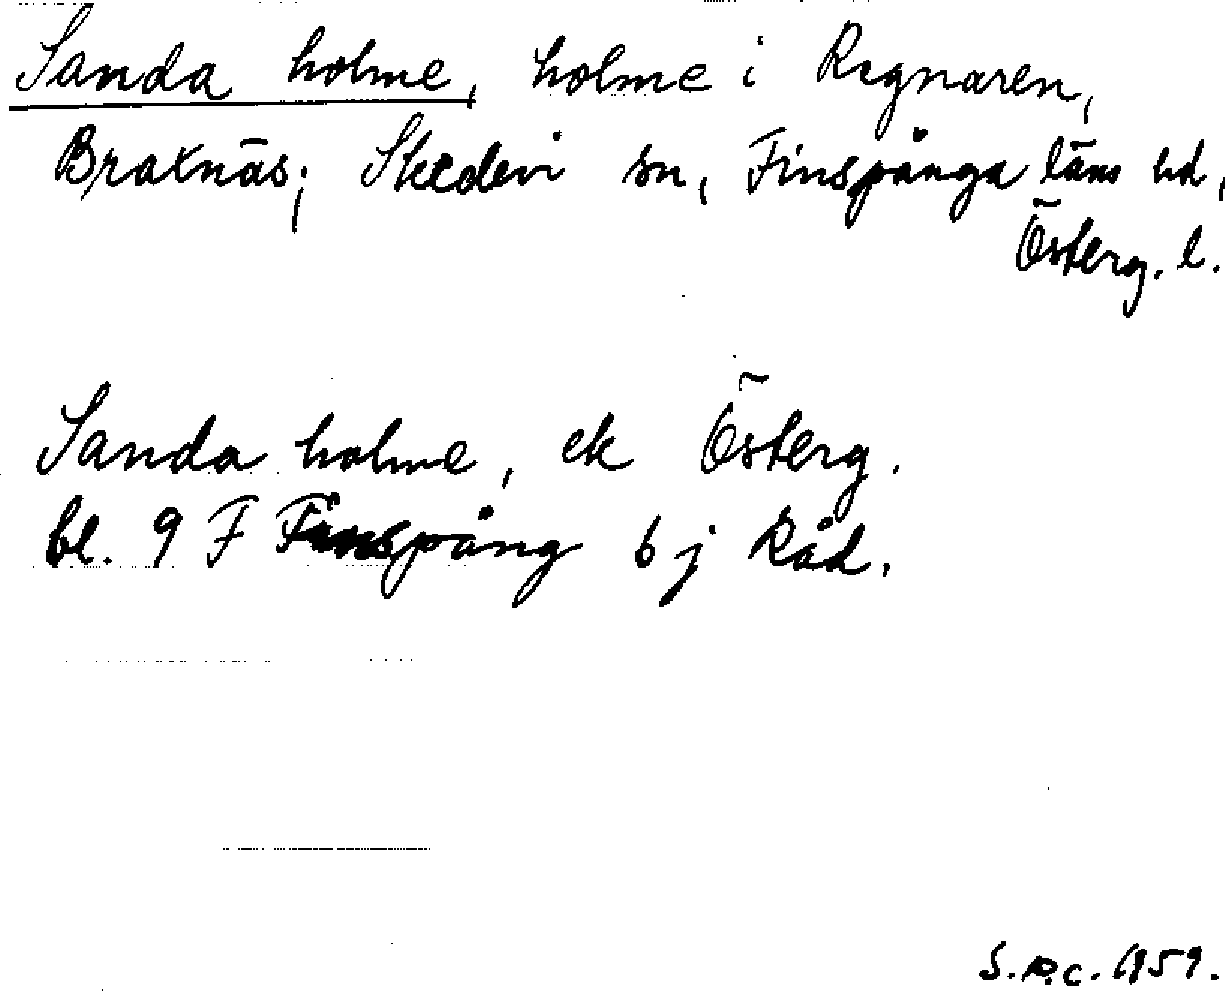 Sanda holme, holme i Regnaren,
Braxnäs; Skedevi sn, Finspånga läns hd,
Österg. l.
Sanda holme, ek Österg.
bl. 9 F Finspång 6 j Råd.
S.R.C. 1959.